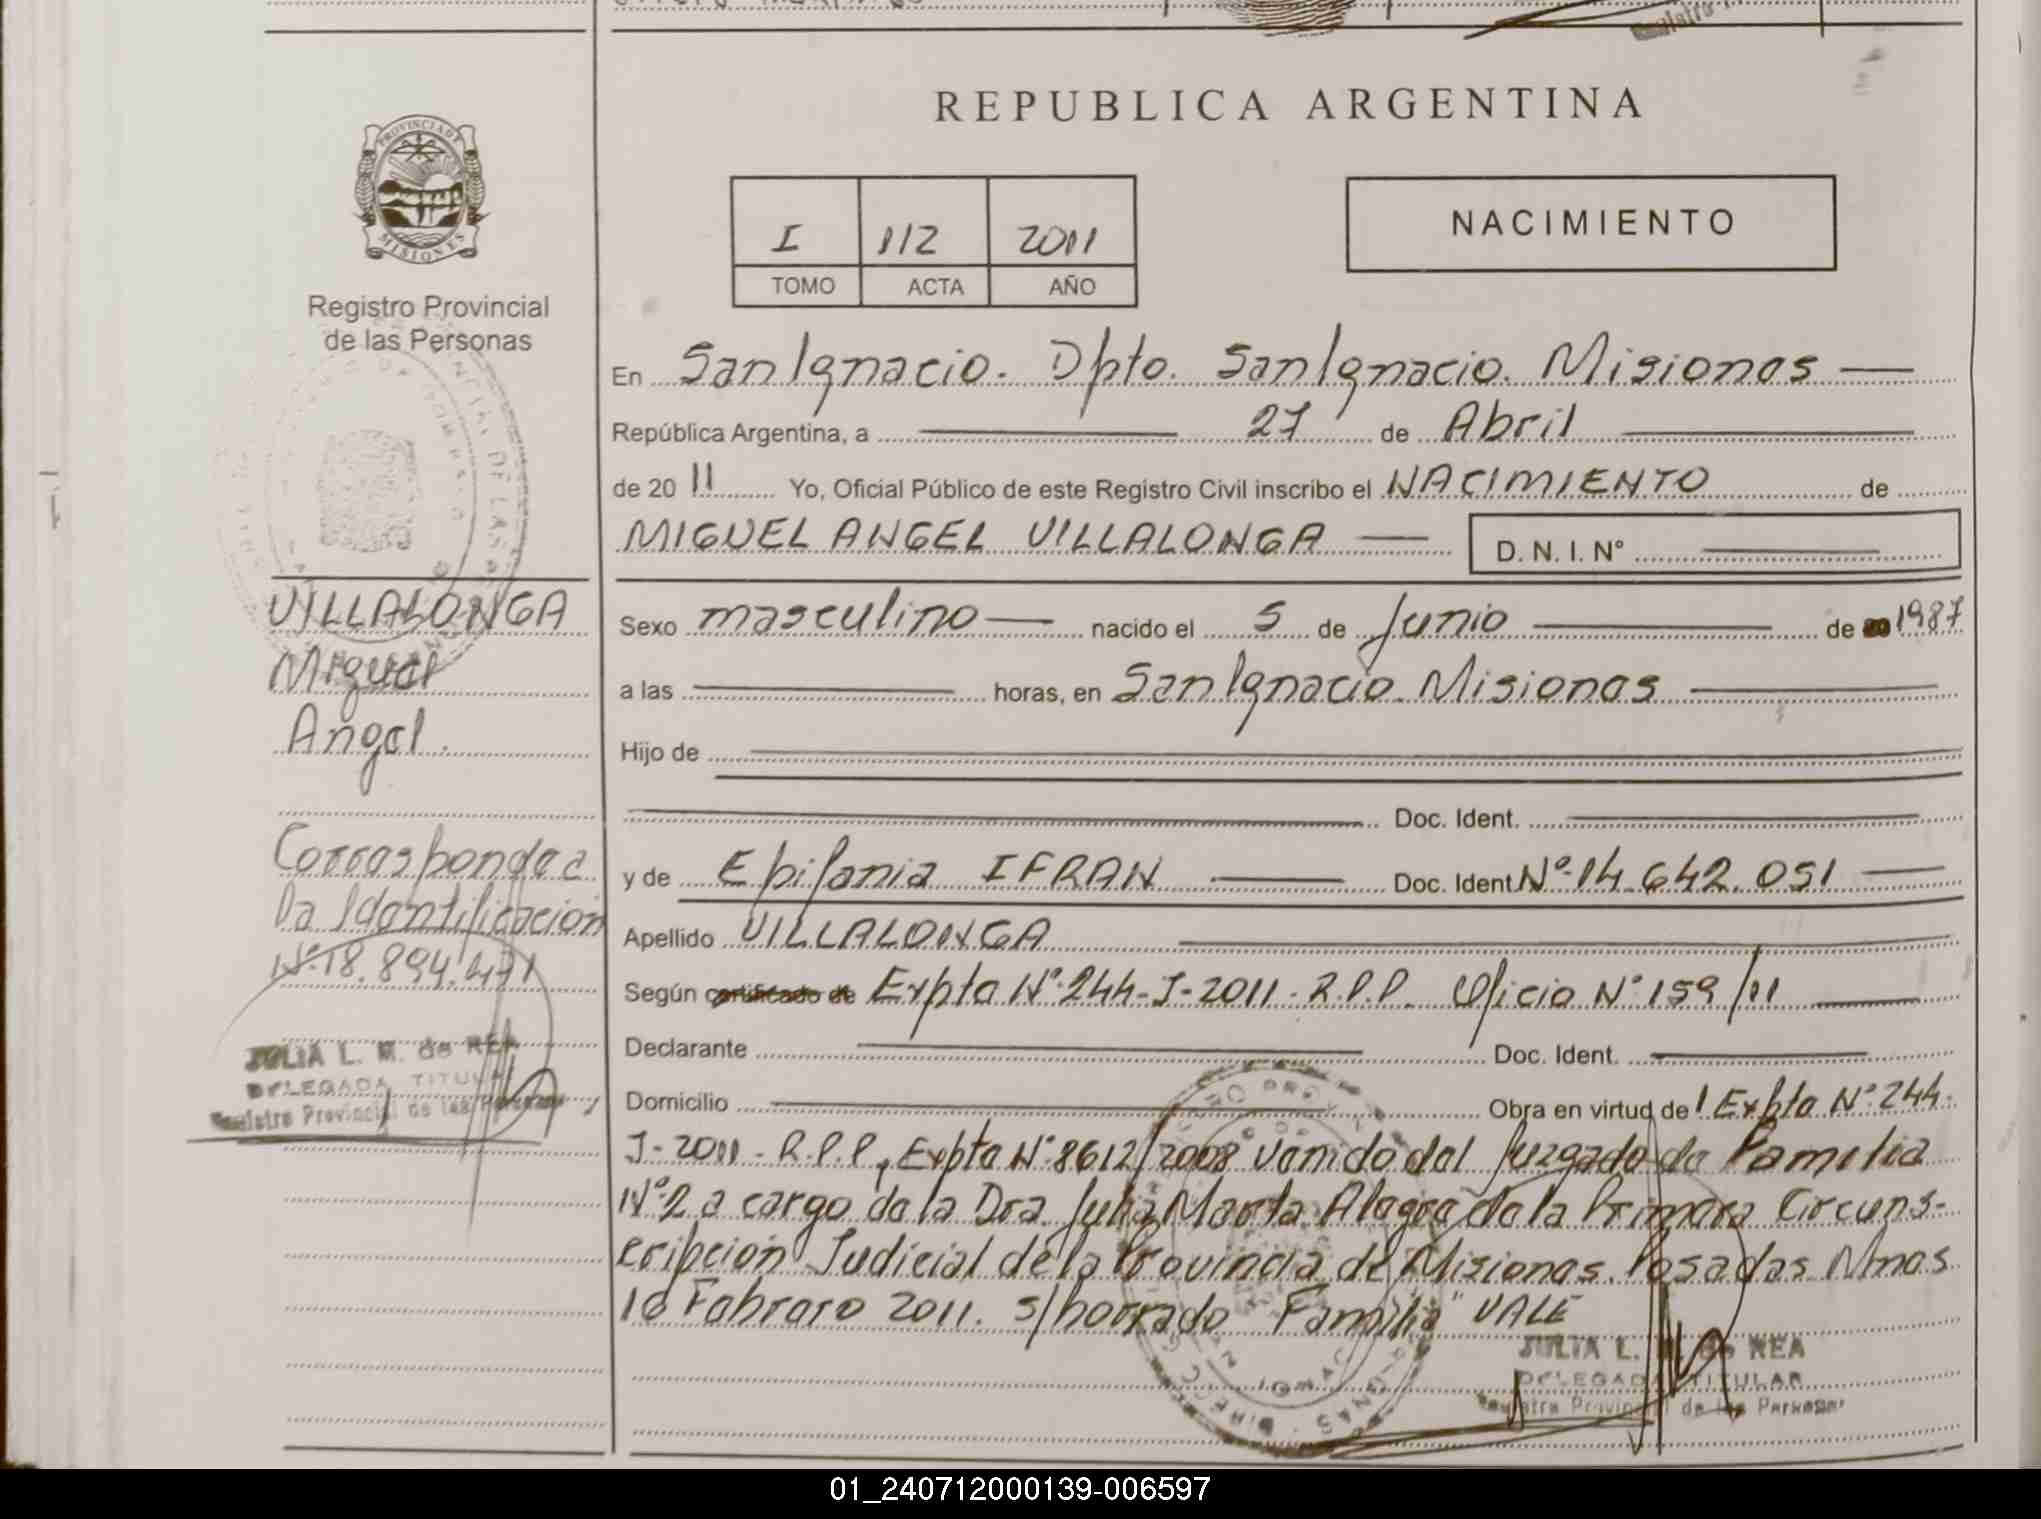 REPUBLICA ARGENTINA
PROVINCIA DE
MISIONES
Registro Provincial
de las Personas
I 112 2011
TOMO ACTA AÑO
NACIMIENTO
En San Ignacio. Dpto. San Ignacio. Misiones
República Argentina, a 27 de Abril
de 20 11 Yo, Oficial Público de este Registro Civil inscribo el NACIMIENTO de
MIGUEL ANGEL VILLALONGA D. N. I. N°
Sexo masculino nacido el 5 de Junio de 1987
a las horas, en San Ignacio. Misiones
Hijo de
Doc. Ident.
y de Epifania IFRAN Doc. Ident N° 14.642.051
Apellido VILLALONGA
Según certificado de Expte N° 244-J-2011-R.P.P. Oficio N° 159/11
Declarante Doc. Ident.
Domicilio Obra en virtud de Expte N° 244-
J-2011-R.P.P, Expte N° 8612/2008 venido del Juzgado de Familia
N° 2 a cargo de la Dra. Julia Marta Alegre de la Primera Circuns-
cripción Judicial de la Provincia de Misiones. Posadas Mnes
10 Febrero 2011. s/borrado "Familia" VALE
JULIA L. M. de REA
DELEGADA TITULAR
Registro Provincial de las Personas
VILLALONGA
Miguel
Angel.
Corresponde a
la Identificación
N° 18.894.471
JULIA L. M. de REA
DELEGADA TITULAR
Registro Provincial de las Personas
01_240712000139-006597